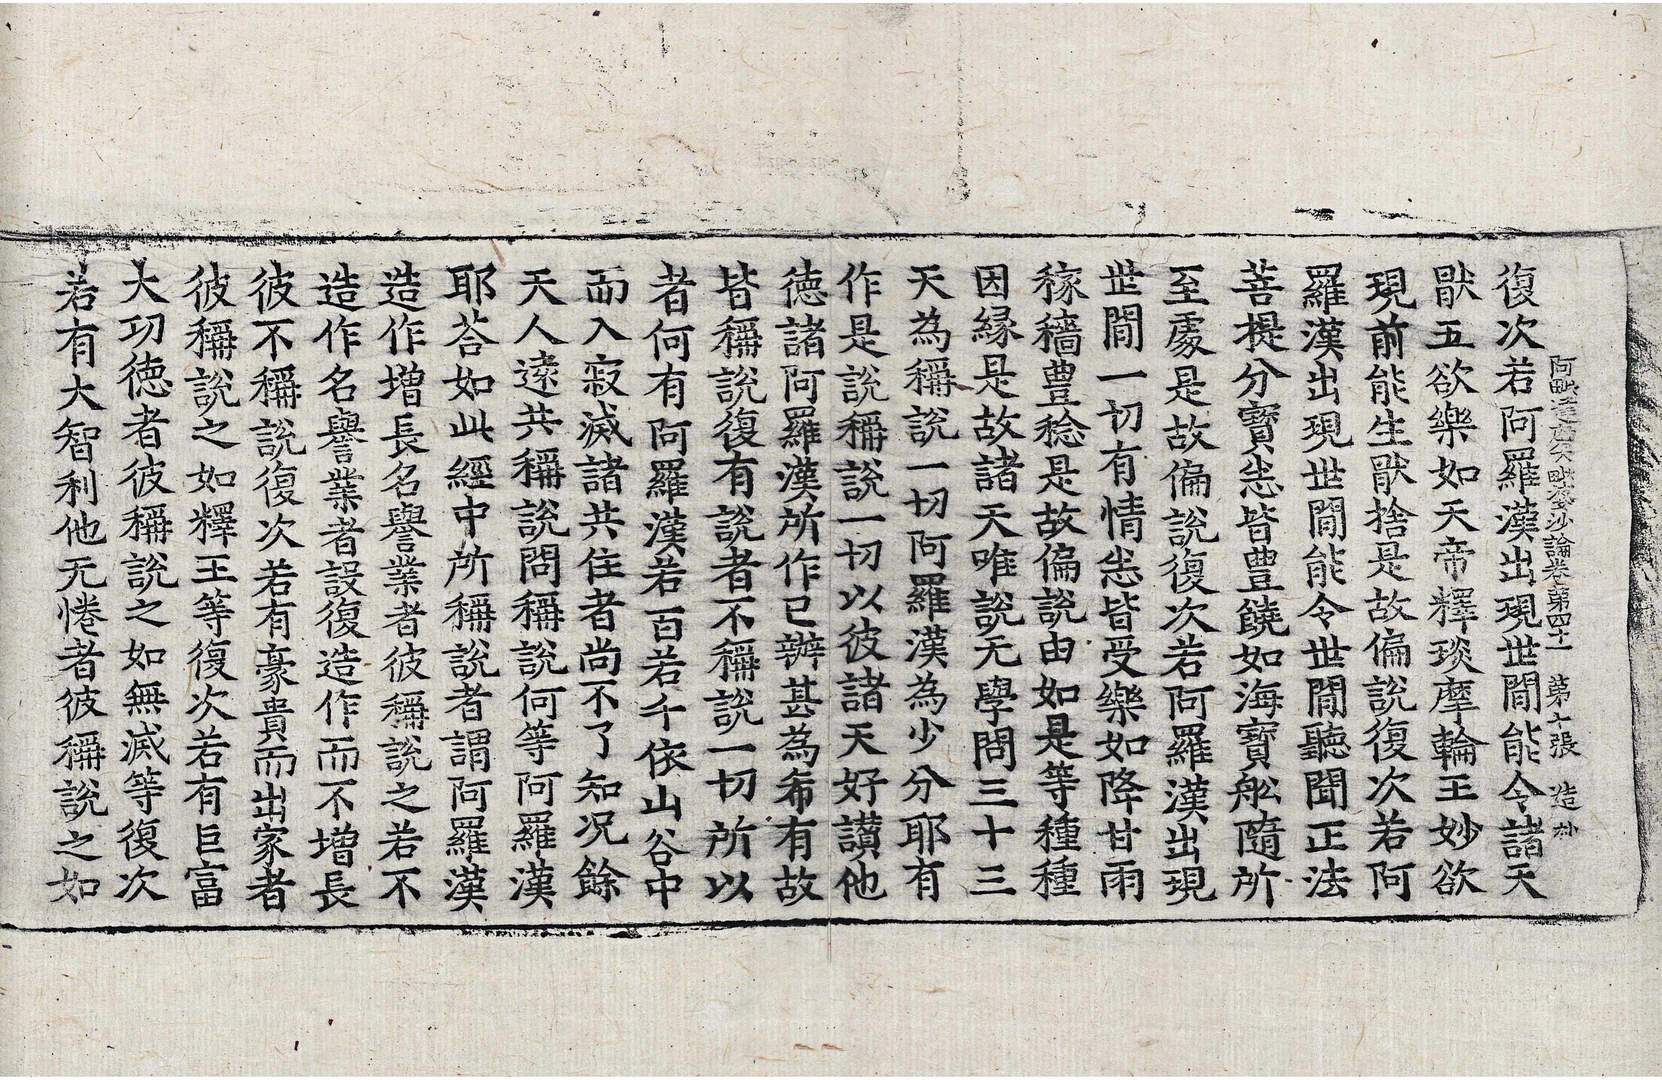 阿毗達磨大毗婆沙論卷第四十一 第十張 造
復次若阿羅漢出現世間能令諸天
猒五欲樂如天帝釋琰摩輪王妙欲
現前能生猒捨是故偏說復次若阿
羅漢出現世間能令世間聽聞正法
菩提分寶悉皆豊饒如海寶舩隨所
至處是故偏說復次若阿羅漢出現
世間一切有情悉皆受樂如降甘雨
稼穡豊稔是故偏說由如是等種種
因緣是故諸天唯說无學問三十三
天為稱說一切阿羅漢為少分耶有
作是說稱說一切以彼諸天好讃他
徳諸阿羅漢所作已辦甚為希有故
皆稱說復有說者不稱說一切所以
者何有阿羅漢若百若千依山谷中
而入寂滅諸共住者尚不了知况餘
天人逺共稱說問稱說何等阿羅漢
耶荅如此經中所稱說者謂阿羅漢
造作増長名譽業者彼稱說之若不
造作名譽業者設復造作而不増長
彼不稱說復次若有豪貴而出家者
彼稱說之如釋王等復次若有巨富
大功徳者彼稱說之如無滅等復次
若有大智利他无惓者彼稱說之如